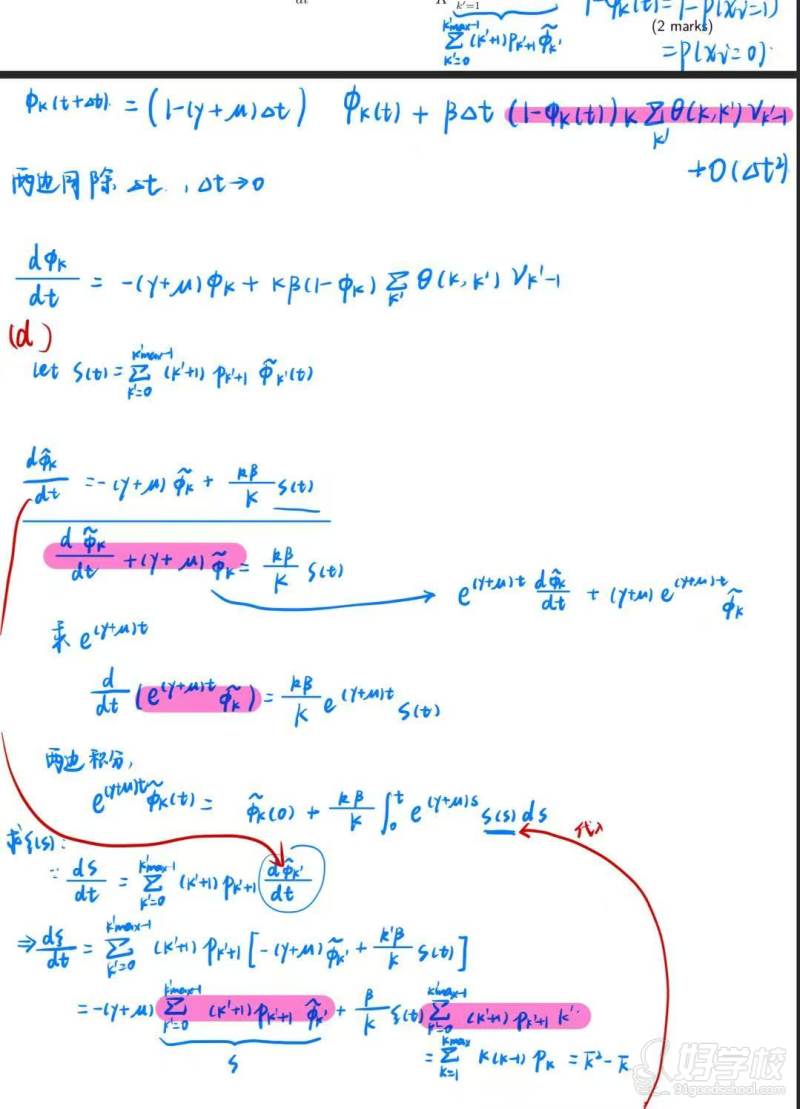 (2 marks)
Σ_{k'=0}^{k'max-1} (k'+1) p_{k'+1} φ̃_{k'}
= p(xv=0)
φ_k(t+Δt) = (1-(γ+μ)Δt) φ_k(t) + βΔt (1-φ_k(t)) k Σ_{k'} θ(k,k') ν_{k'-1}
+O(Δt²)
两边同除 Δt, Δt→0
dφ_k/dt = -(γ+μ)φ_k + kβ(1-φ_k) Σ_{k'} θ(k,k') ν_{k'-1}
(d)
let S(t) = Σ_{k'=0}^{k'max-1} (k'+1) p_{k'+1} φ̃_{k'}(t)
dφ̃_k/dt = -(γ+μ) φ̃_k + kβ/k̄ S(t)
dφ̃_k/dt + (γ+μ) φ̃_k = kβ/k̄ S(t)
e^{(γ+μ)t} dφ̃_k/dt + (γ+μ) e^{(γ+μ)t} φ̃_k
乘 e^{(γ+μ)t}
d/dt (e^{(γ+μ)t} φ̃_k) = kβ/k̄ e^{(γ+μ)t} S(t)
两边积分,
e^{(γ+μ)t} φ̃_k(t) = φ̃_k(0) + kβ/k̄ ∫_0^t e^{(γ+μ)s} S(s) ds
代入
求 S(s):
∵ dS/dt = Σ_{k'=0}^{k'max-1} (k'+1) p_{k'+1} dφ̃_{k'}/dt
⇒ dS/dt = Σ_{k'=0}^{k'max-1} (k'+1) p_{k'+1} [-(γ+μ) φ̃_{k'} + k'β/k̄ S(t)]
= -(γ+μ) Σ_{k'=0}^{k'max-1} (k'+1) p_{k'+1} φ̃_{k'} + β/k̄ S(t) Σ_{k'=0}^{k'max-1} (k'+1) p_{k'+1} k'
S
= Σ_{k=1}^{kmax} k(k-1) p_k = k̄² - k̄
好学校
91goodschool.com